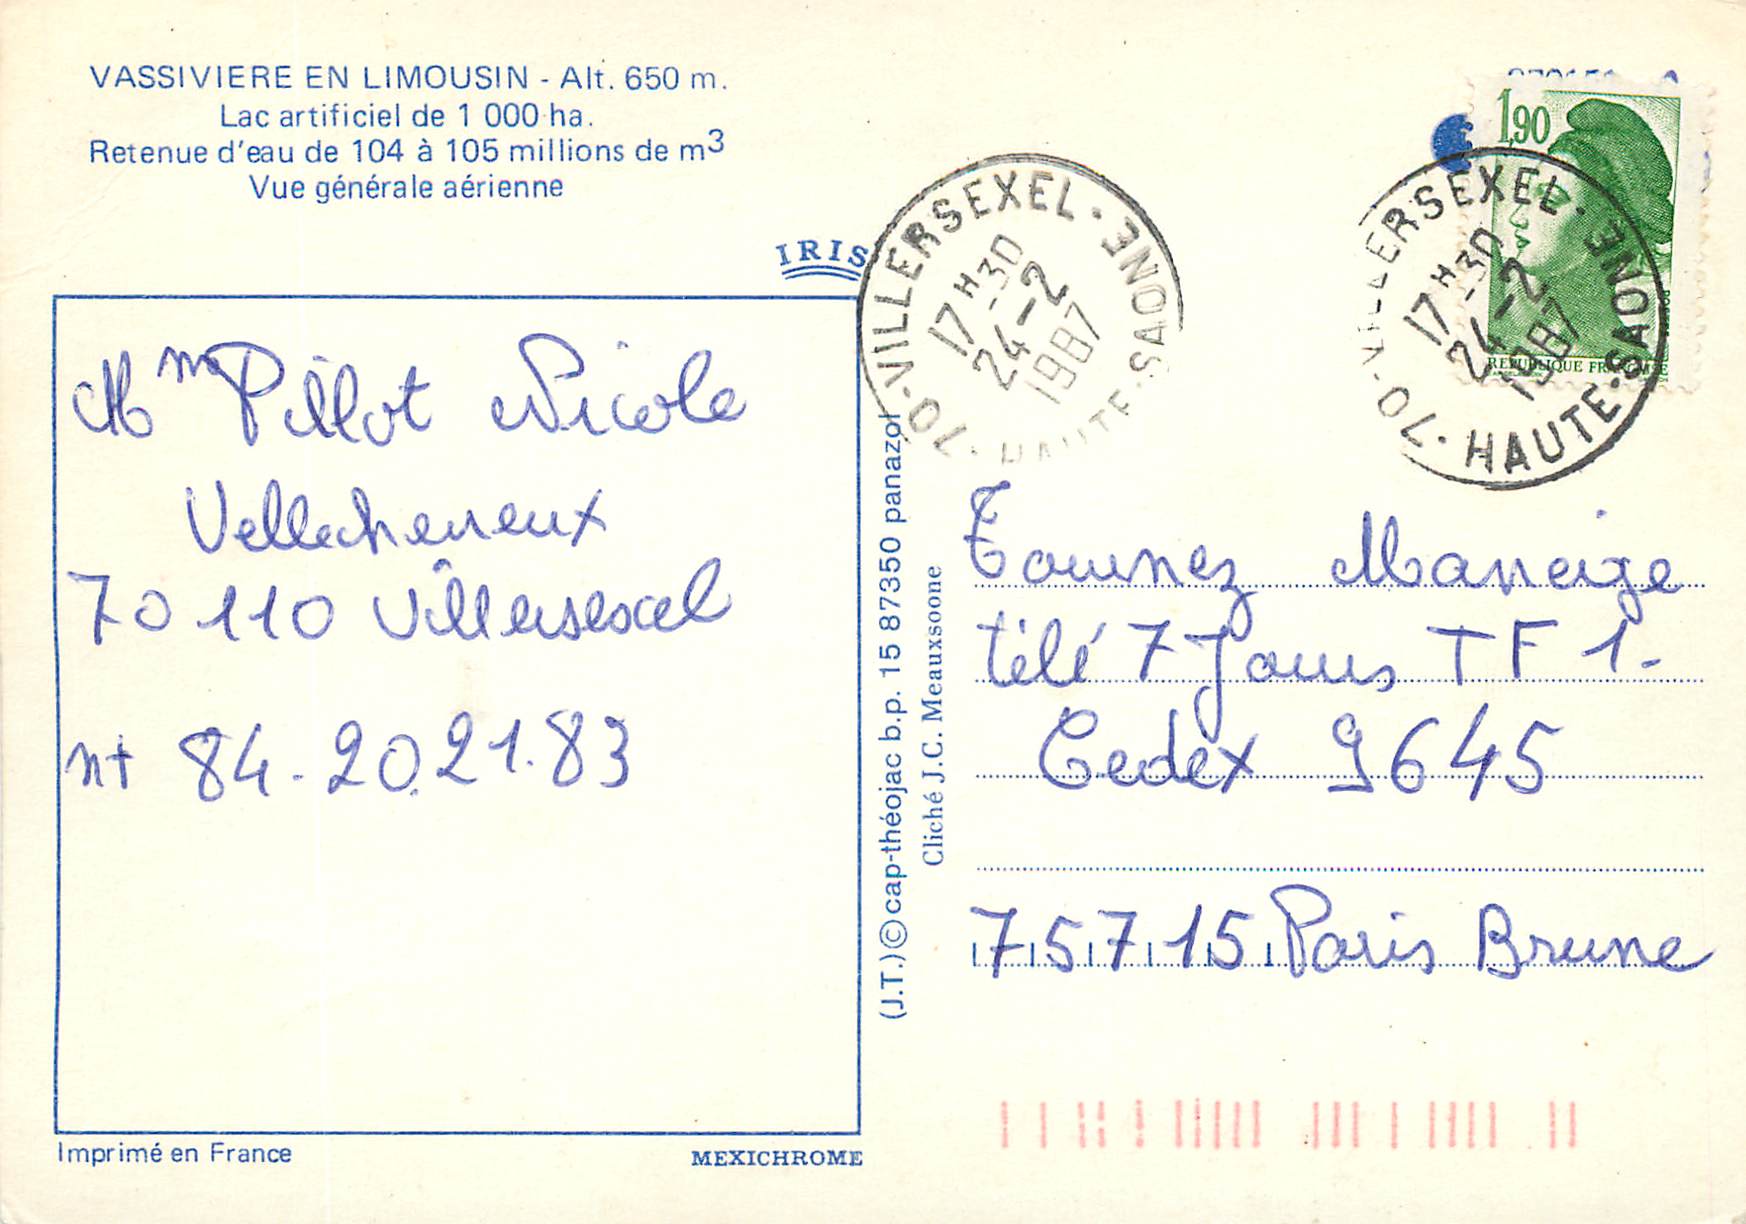 VASSIVIERE EN LIMOUSIN - Alt. 650 m.
Lac artificiel de 1 000 ha.
Retenue d'eau de 104 à 105 millions de m3
Vue générale aérienne
IRIS
Mme Pillot Nicole
Vellechevreux
70110 Villersexel
nt 84.20.21.83
Imprimé en France
MEXICHROME
(J.T.) © cap-théojac b.p. 15 87350 panazol
Cliché J.C. Meauxsoone
70 - VILLERSEXEL - HAUTE-SAONE
17H30
24-2
1987
1,90
REPUBLIQUE FRANÇAISE
70 - VILLERSEXEL - HAUTE-SAONE
17H30
24-2
1987
Tournez Maneige
télé 7 Jours TF 1-
Cedex 9645
75715 Paris Brune